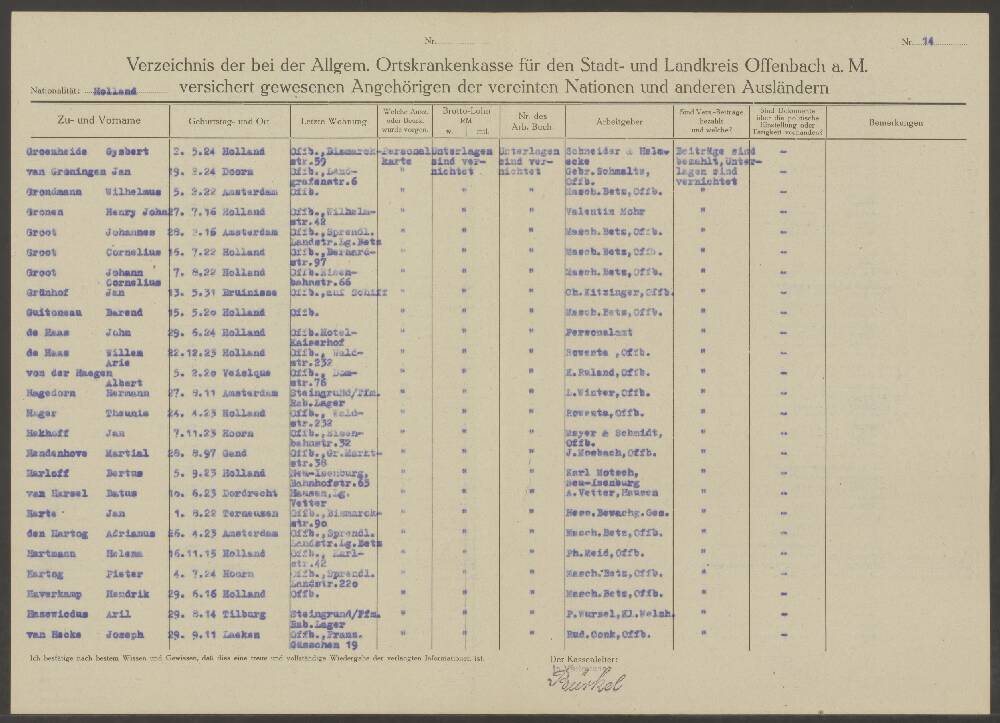 Nr.
Nr. 14
Verzeichnis der bei der Allgem. Ortskrankenkasse für den Stadt- und Landkreis Offenbach a. M.
Nationalität: Holland versichert gewesenen Angehörigen der vereinten Nationen und anderen Ausländern
Zu- und Vorname Geburtstag- und Ort Letzte Wohnung Welche Ausw. oder Besch. wurde vorgen. Brutto-Lohn RM w. mtl. Nr. des Arb. Buch Arbeitgeber Sind Vers.-Beiträge bezahlt und welche? Sind Dokumente über die politische Einstellung oder Tätigkeit vorhanden? Bemerkungen
Groenheide Gysbert 2. 5.24 Holland Offb., Bismarck- Personal Unterlagen Unterlagen Schneider & Helm- Beiträge sind -
str.59 karte sind ver- sind ver- ecke bezahlt, Unter-
van Groningen Jan 19. 3.24 Doorn Offb., Land- " nichtet nichtet Gebr.Schmaltz, lagen sind -
grafenstr.6 Offb. vernichtet
Grondmann Wilhelmus 5. 2.22 Amsterdam Offb. " " " Masch.Betz,Offb. " -
Gronen Henry John 27. 7.16 Holland Offb.,Wilhelm- " " " Valentin Mohr " -
str.42
Groot Johannes 28. 3.16 Amsterdam Offb.,Sprendl. " " " Masch.Betz,Offb. " -
Landstr.Lg.Betz
Groot Cornelius 15. 7.22 Holland Offb.,Bernard- " " " Masch.Betz,Offb. " -
str.97
Groot Johann 7. 8.22 Holland Offb.Eisen- " " " Masch.Betz,Offb. " -
Cornelius bahnstr.66
Grünhof Jan 13. 5.31 Bruinisse Offb.,auf Schiff " " " Ch.Kitzinger,Offb. " -
Guitoneau Barend 15. 5.20 Holland Offb. " " " Masch.Betz,Offb. " -
de Haas John 29. 6.24 Holland Offb.Hotel- " " " Personalamt " -
Kaiserhof
de Haas Willem 22.12.23 Holland Offb., Wald- " " " Rowenta ,Offb. " -
Arie str.232
von der Haegen 5. 2.20 Veielque Offb., Dom- " " " K.Ruland,Offb. " -
Albert str.76
Hagedorn Hermann 27. 9.11 Amsterdam Steingrund/Ffm. " " " L.Winter,Offb. " -
Hsb.Lager
Hager Theunis 24. 4.23 Holland Offb., Wald- " " " Rowenta,Offb. " -
str.232
Hakhoff Jan 7.11.23 Hoorn Offb.,Eisen- " " " Mayer & Schmidt, " -
bahnstr.32 Offb.
Handenhove Martial 28. 8.97 Gend Offb.,Gr.Markt- " " " J.Mosbach,Offb. " -
str.38
Harloff Bertus 5. 9.23 Holland Neu-Isenburg, " " " Karl Motsch, " -
Bahnhofstr.63 Neu-Isenburg
van Harsel Datus 10. 6.23 Dordrecht Hausen,Lg. " " " A.Vetter,Hausen " -
Vetter
Harte Jan 1. 8.22 Terneuzen Offb.,Bismarck- " " " Hess.Bewachg.Ges. " -
str.90
den Hartog Adrianus 26. 4.23 Amsterdam Offb.,Sprendl. " " " Masch.Betz,Offb. " -
Landstr.Lg.Betz
Hartmann Helena 16.11.15 Holland Offb., Karl- " " " Ph.Meid,Offb. " -
str.42
Hartog Pieter 4. 7.24 Hoorn Offb.,Sprendl. " " " Masch.Betz,Offb. " -
Landstr.220
Haverkamp Hendrik 29. 6.16 Holland Offb. " " " Masch.Betz,Offb. " -
Hasewiodus Aril 29. 8.14 Tilburg Steingrund/Ffm. " " " P.Wursel,Kl.Welzh. " -
Hsb.Lager
van Hecke Joseph 29. 9.11 Laeken Offb.,Franz. " " " Rud.Conk,Offb. " -
Gässchen 19
Ich bestätige nach bestem Wissen und Gewissen, daß dies eine treue und vollständige Wiedergabe der verlangten Informationen ist. Der Kassenleiter:
In Vertretung
Bürkel